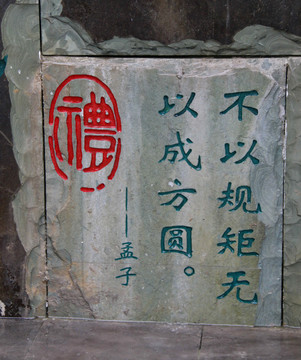 不以规矩无
以成方圆。
——孟子
禮